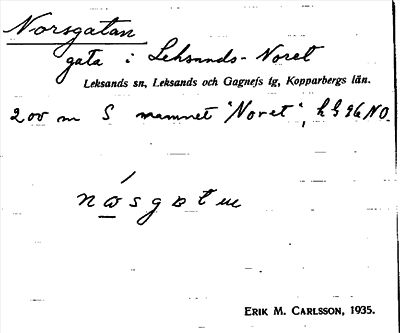 Norsgatan
gata i Leksands-Noret
Leksands sn, Leksands och Gagnefs tg, Kopparbergs län.
200 m S namnet "Noret",
ERIK M. CARLSSON, 1935.